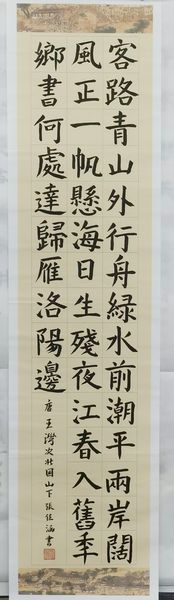 客路青山外行舟綠水前潮平兩岸闊
風正一帆懸海日生殘夜江春入舊年
鄉書何處達歸雁洛陽邊
唐王灣次北固山下張佳涵書